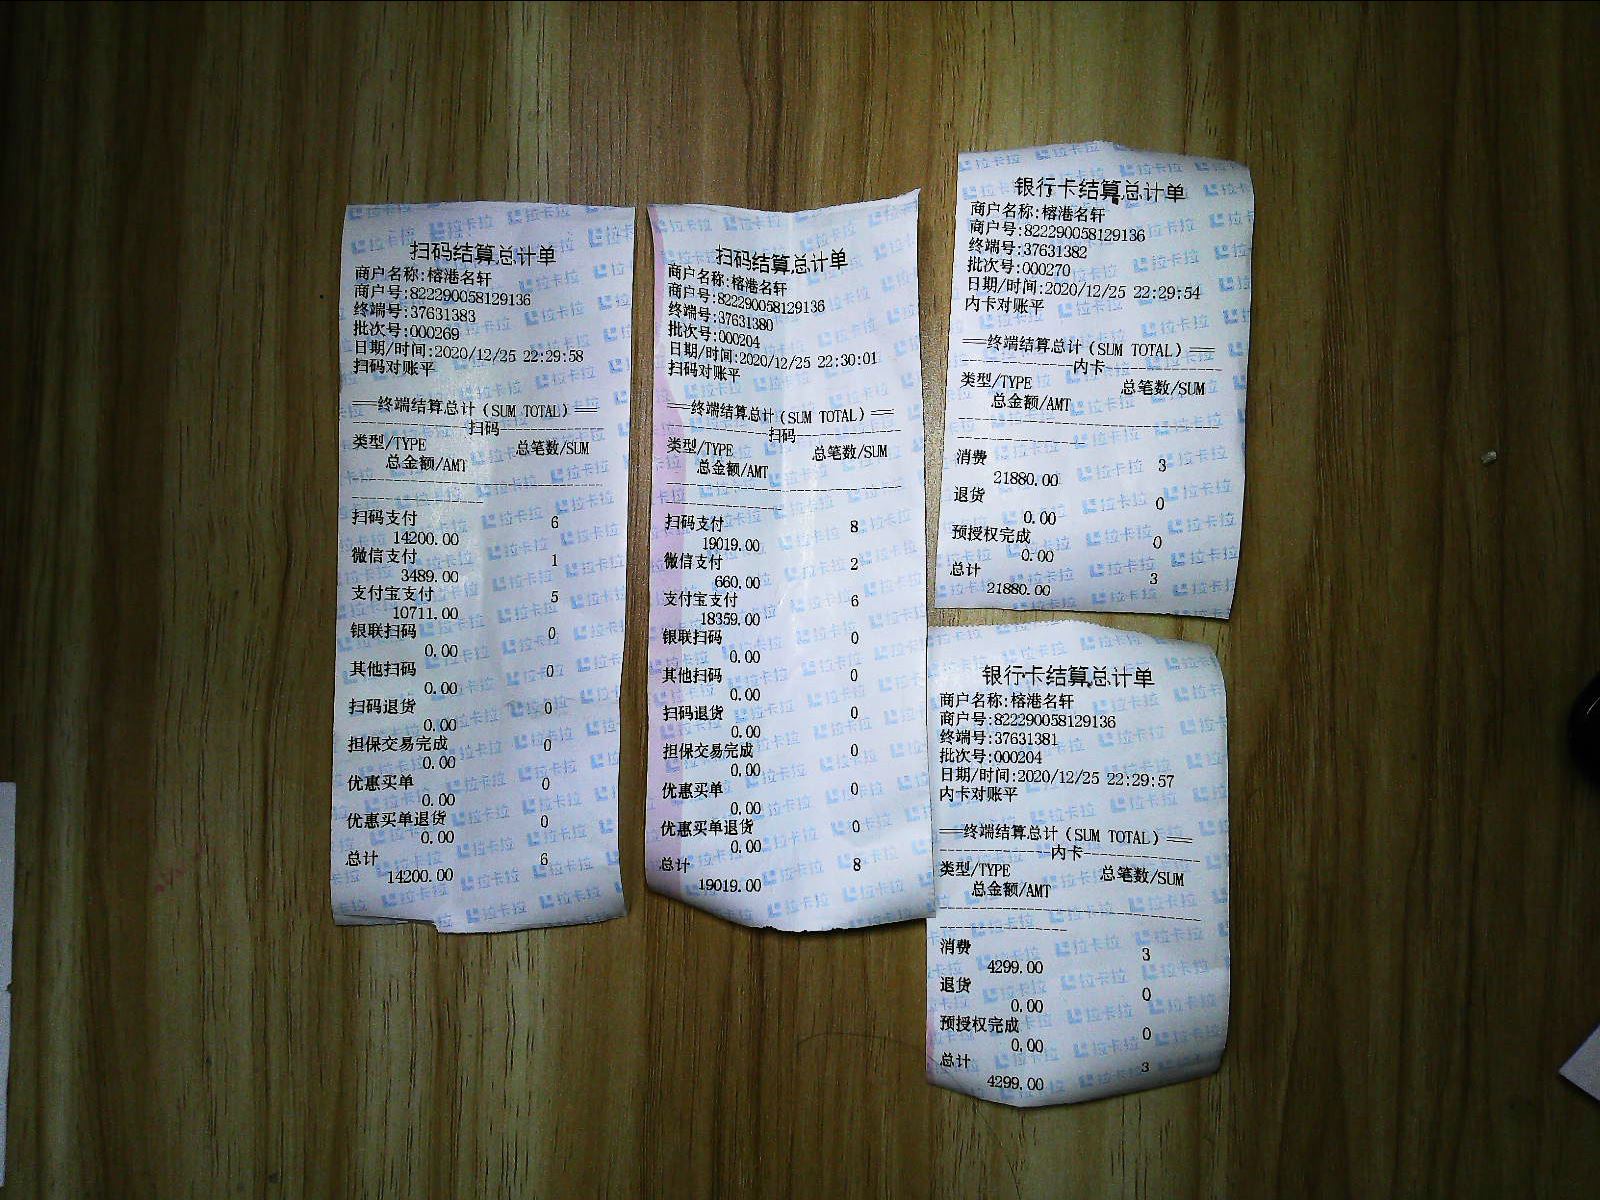 扫码结算总计单
商户名称:榕港名轩
商户号:822290058129136
终端号:37631383
批次号:000269
日期/时间:2020/12/25 22:29:58
扫码对账平
==终端结算总计(SUM TOTAL)==
扫码
类型/TYPE 总笔数/SUM
总金额/AMT
扫码支付 6
14200.00
微信支付 1
3489.00
支付宝支付 5
10711.00
银联扫码 0
0.00
其他扫码 0
0.00
扫码退货 0
0.00
担保交易完成 0
0.00
优惠买单 0
0.00
优惠买单退货 0
0.00
总计 6
14200.00
扫码结算总计单
商户名称:榕港名轩
商户号:822290058129136
终端号:37631380
批次号:000204
日期/时间:2020/12/25 22:30:01
扫码对账平
==终端结算总计(SUM TOTAL)==
扫码
类型/TYPE 总笔数/SUM
总金额/AMT
扫码支付 8
19019.00
微信支付 2
660.00
支付宝支付 6
18359.00
银联扫码 0
0.00
其他扫码 0
0.00
扫码退货 0
0.00
担保交易完成 0
0.00
优惠买单 0
0.00
优惠买单退货 0
0.00
总计 8
19019.00
银行卡结算总计单
商户名称:榕港名轩
商户号:822290058129136
终端号:37631382
批次号:000270
日期/时间:2020/12/25 22:29:54
内卡对账平
==终端结算总计(SUM TOTAL)==
内卡
类型/TYPE 总笔数/SUM
总金额/AMT
消费 3
21880.00
退货 0
0.00
预授权完成 0
0.00
总计 3
21880.00
银行卡结算总计单
商户名称:榕港名轩
商户号:822290058129136
终端号:37631381
批次号:000204
日期/时间:2020/12/25 22:29:57
内卡对账平
==终端结算总计(SUM TOTAL)==
内卡
类型/TYPE 总笔数/SUM
总金额/AMT
消费 3
4299.00
退货 0
0.00
预授权完成 0
0.00
总计 3
4299.00
拉卡拉